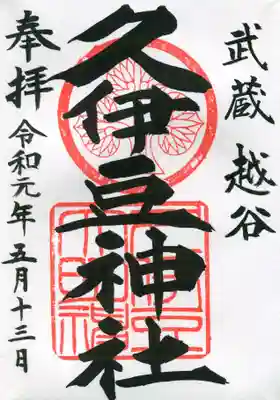 武蔵 越谷
久伊豆神社
奉拝
令和元年五月十三日